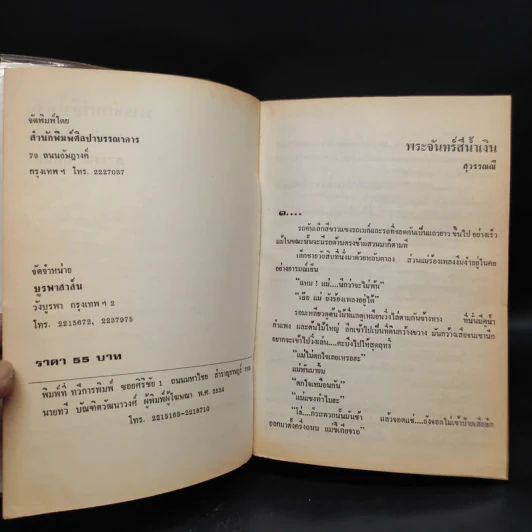 จัดพิมพ์โดย
สำนักพิมพ์ศิลปาบรรณาคาร
79 ถนนอัษฎางค์
กรุงเทพ ฯ โทร. 2227037
จัดจำหน่าย
บูรพาสาส์น
วังบูรพา กรุงเทพ ฯ 2
โทร. 2215672, 2237975
ราคา 55 บาท
พิมพ์ที่ ทวีการพิมพ์ ซอยศิริชัย 1 ถนนมหาไชย สำราญราษฎร์ กทม
นายทวี บัณฑิตวัฒนาวงศ์ ผู้พิมพ์ผู้โฆษณา พ.ศ. 2524
โทร. 2215163-2218710
พระจันทร์สีน้ำเงิน
สุวรรณี
๑....
รถคันเล็กสีขาวแซงรถเมล์และรถที่จอดกันเป็นแถวยาวขึ้นไปอย่างเร็ว
แม้ในขณะนั้นจะมีรถด้านตรงข้ามสวนมาก็ตามที
เด็กชายวัยสิบที่นั่งมาด้วยหลับตาลง ส่วนแม่ร้องเพลงงึมงำอยู่ในคอ
อย่างอารมณ์เย็น
"แหม ! แม่....นึกว่าจะไม่พ้น"
"เอ๊อ แม่ ยังร้องเพลงอยู่ได้"
"แม่ไม่ตกใจเลยเหรอฮะ"
แม่หันมายิ้ม
"ตกใจเหมือนกัน"
"แม่แซงทำไมฮะ"